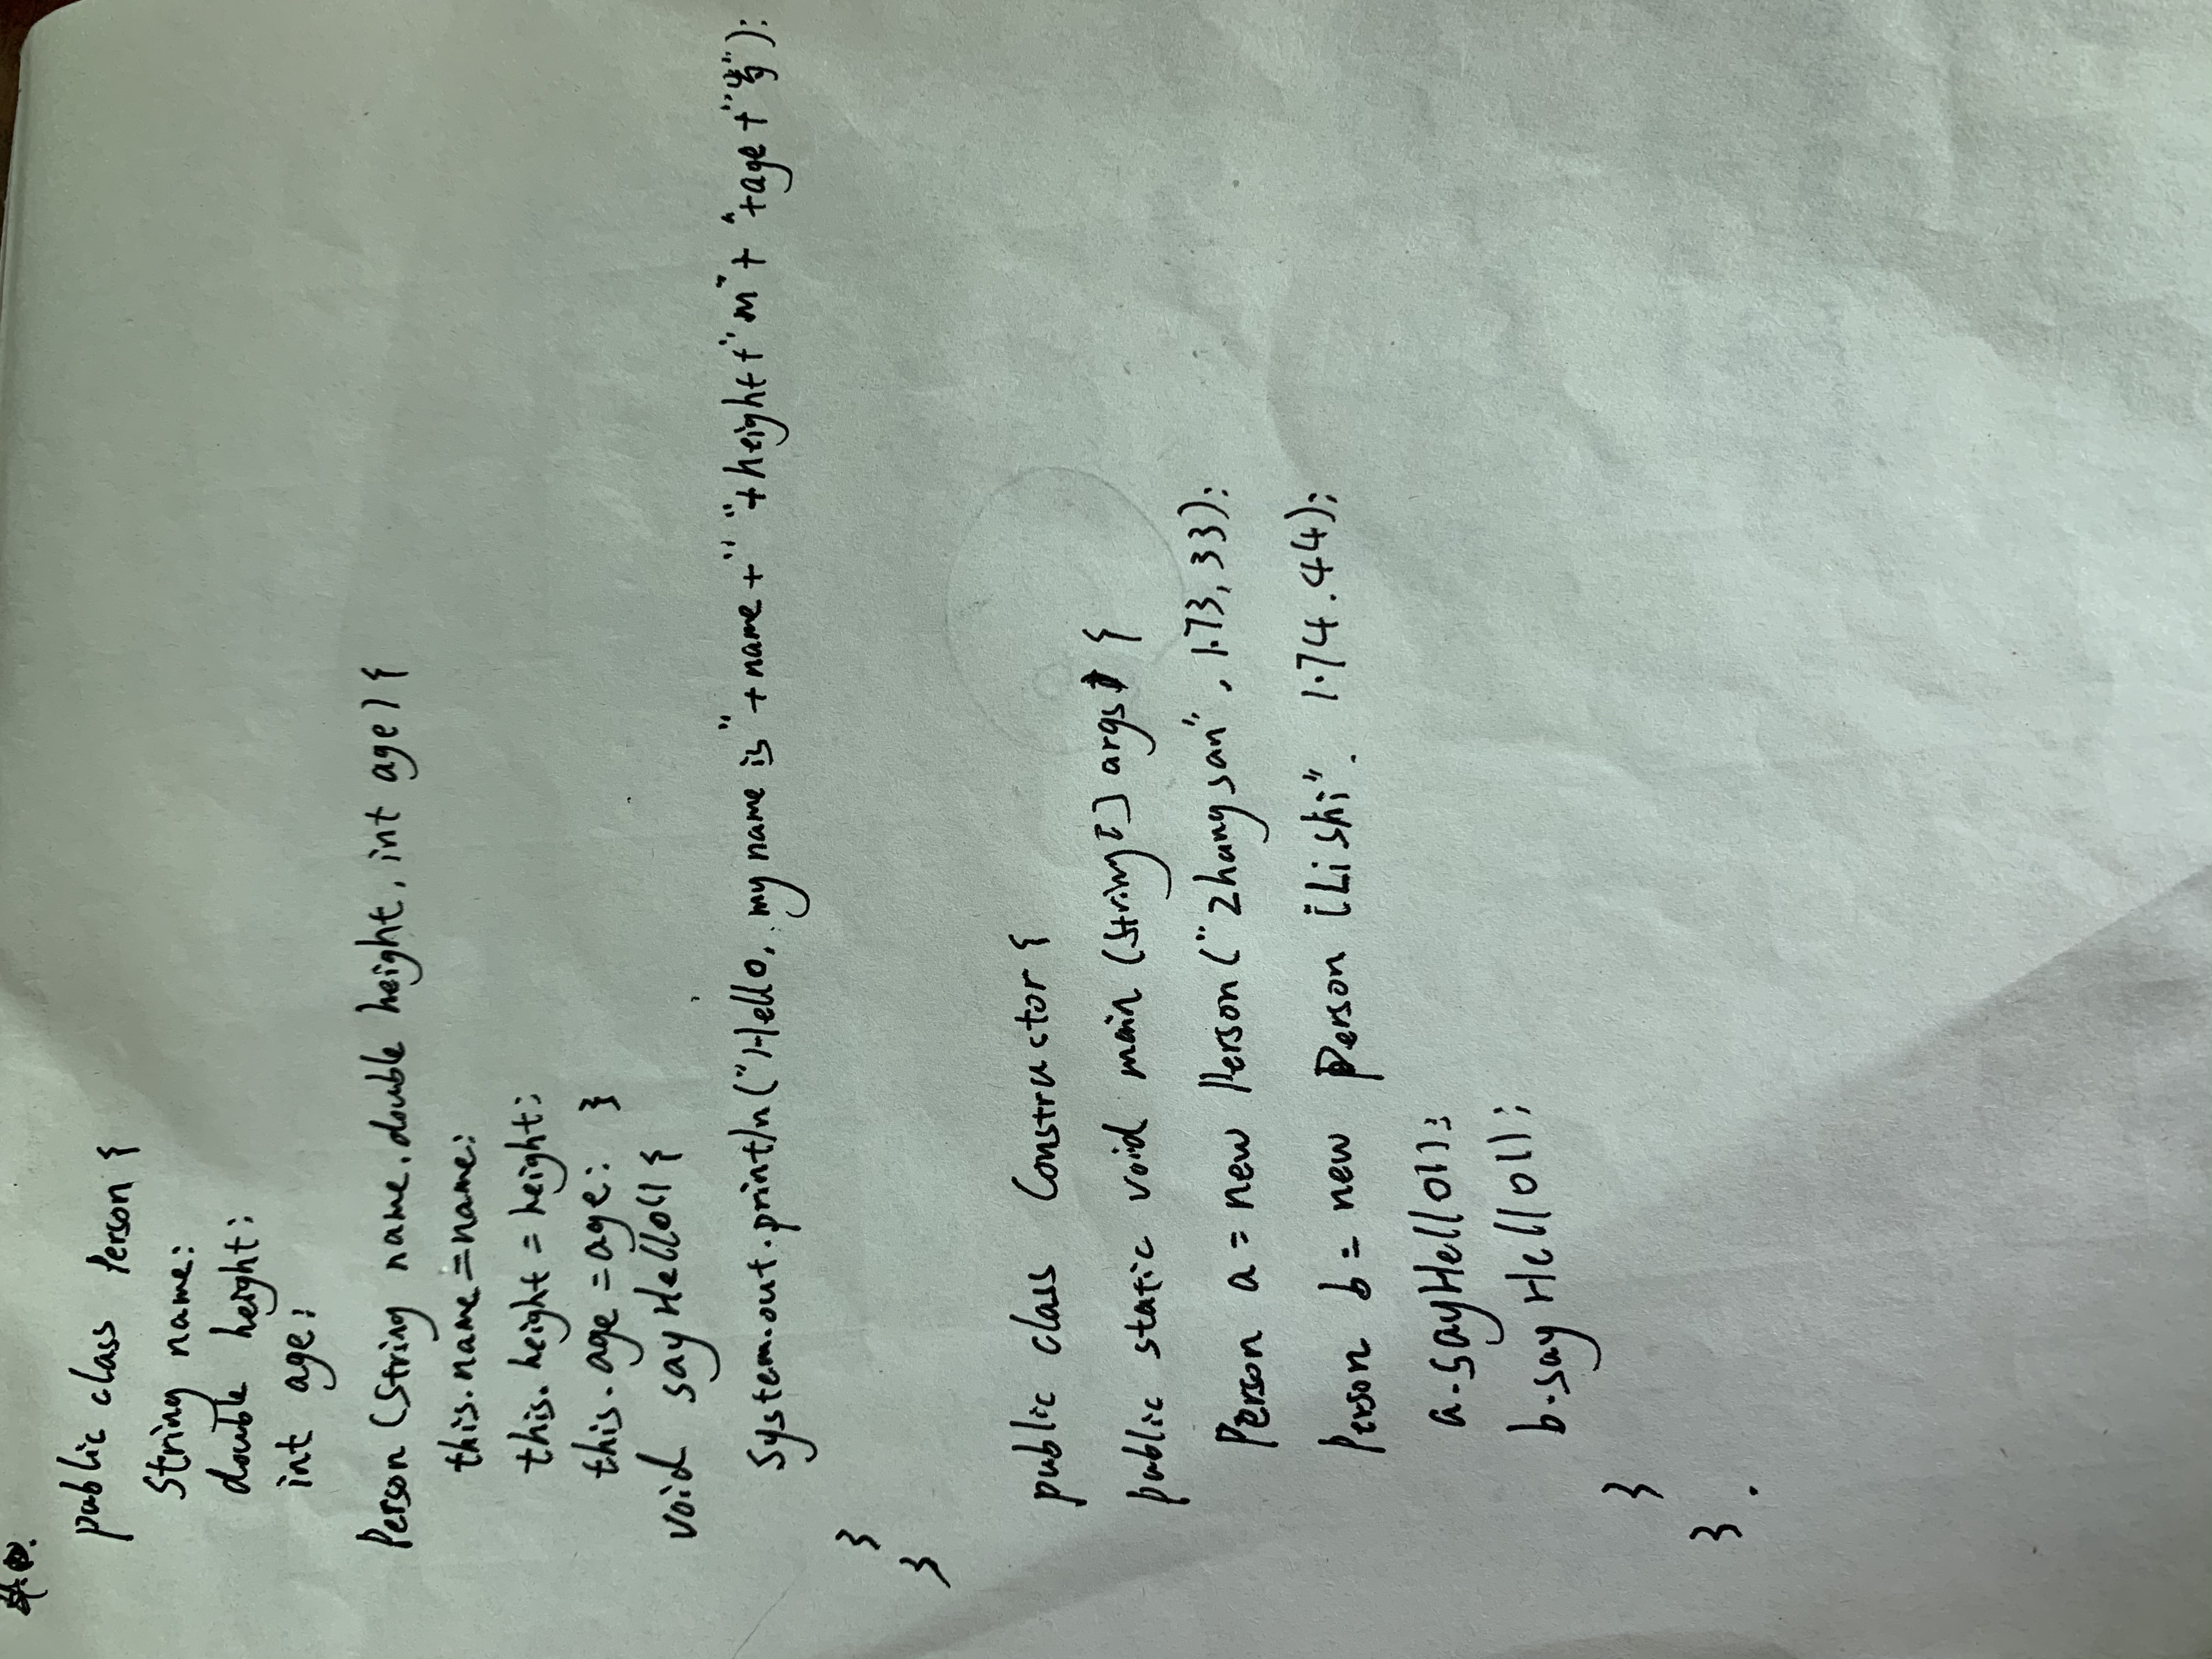 public class Person {
String name;
double height;
int age;
Person (String name, double height, int age) {
this.name = name;
this.height = height;
this.age = age; }
void sayHello() {
System.out.println("Hello, my name is" + name + " " + height + "m" + " " + age + "岁");
}
}
public class Constructor {
public static void main (String[] args) {
Person a = new Person("Zhangsan", 1.73, 33);
Person b = new Person [Lishi". 1.74.44);
a.sayHello();
b.sayHello();
}
}.